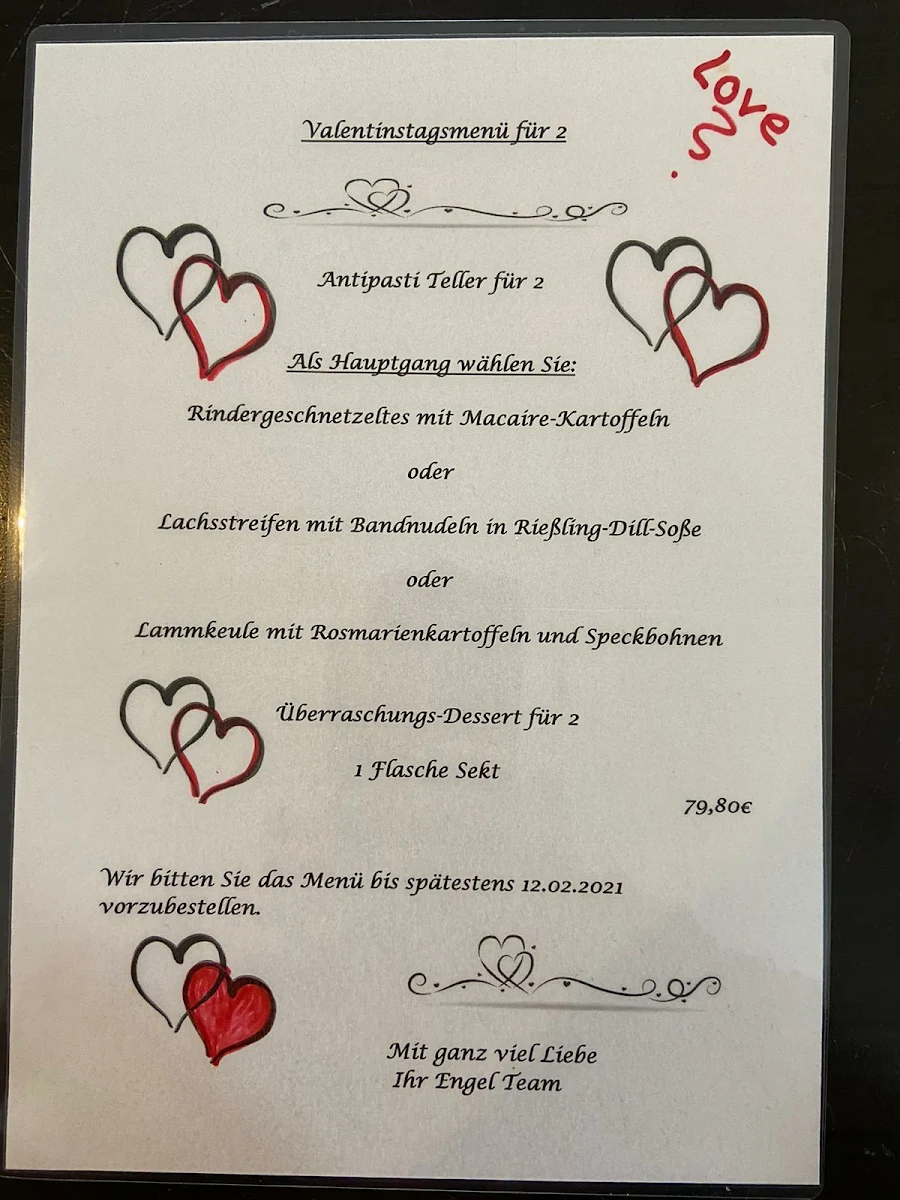 Love
Valentinstagsmenü für 2
Antipasti Teller für 2
Als Hauptgang wählen Sie:
Rindergeschnetzeltes mit Macaire-Kartoffeln
oder
Lachsstreifen mit Bandnudeln in Rießling-Dill-Soße
oder
Lammkeule mit Rosmarienkartoffeln und Speckbohnen
Überraschungs-Dessert für 2
1 Flasche Sekt
79,80€
Wir bitten Sie das Menü bis spätestens 12.02.2021
vorzubestellen.
Mit ganz viel Liebe
Ihr Engel Team